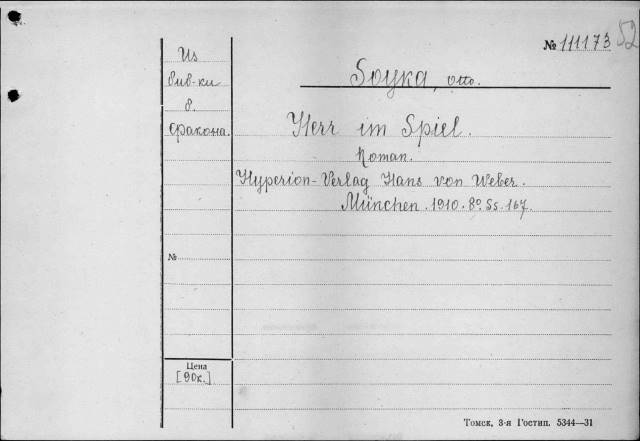 № 111173
52
Из
Soyka, Otto.
биб-ки
в.
Фракона.
Herr im Spiel.
Roman.
Hyperion-Verlag Hans von Weber.
München. 1910. 8º. Ss. 167.
№
Цена
[90к.]
Томск, 3-я Гостип. 5344—31